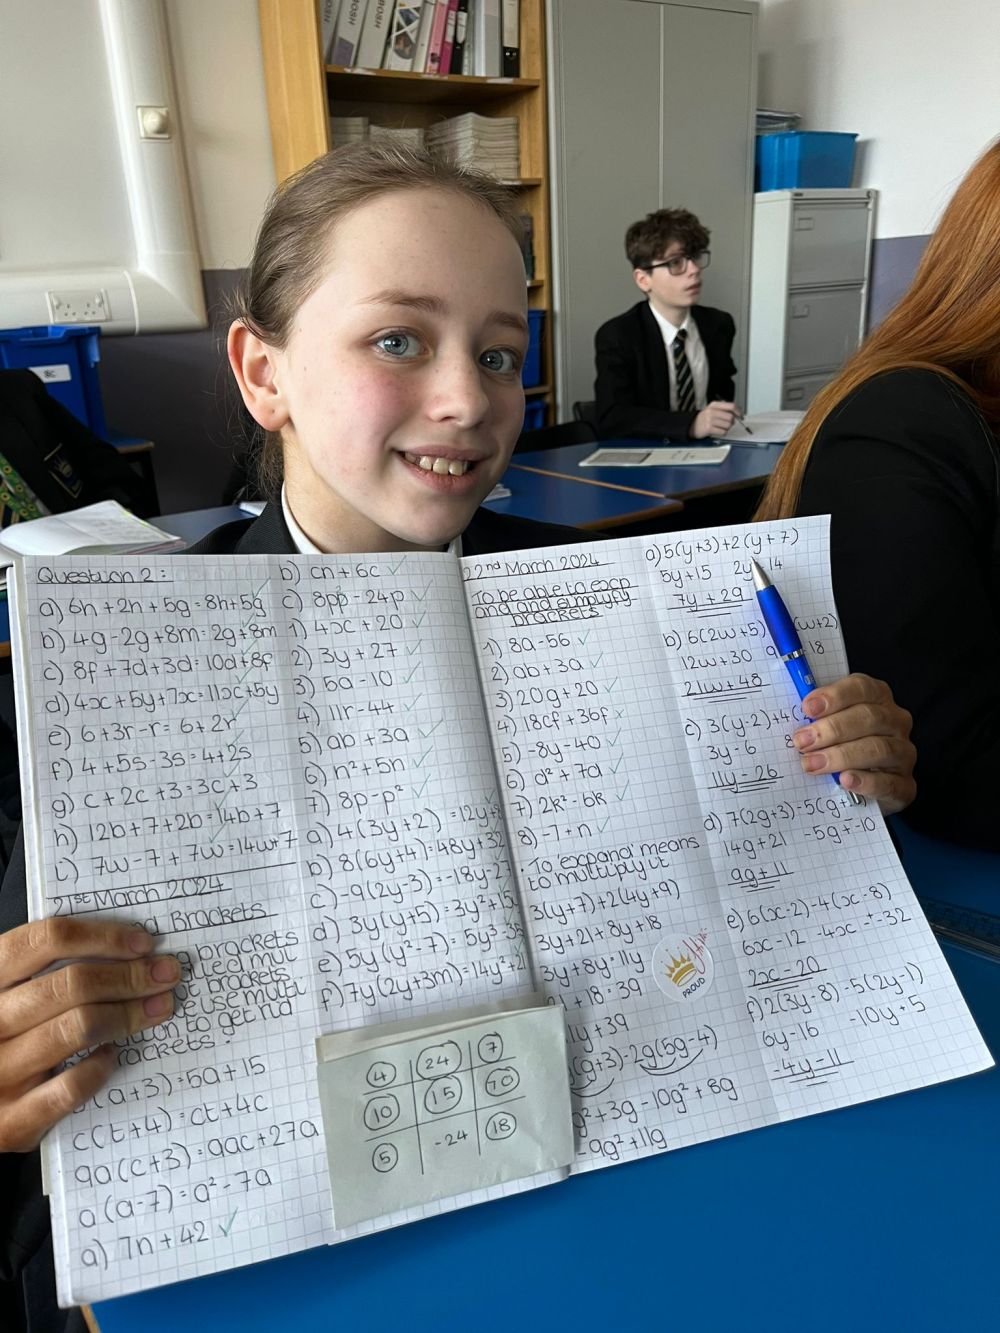 Question 2:
a) 6h + 2h + 5g = 8h + 5g
b) 4g - 2g + 8m = 2g + 8m
c) 8f + 7d + 3d = 10d + 8f
d) 4x + 5y + 7x = 11x + 5y
e) 6 + 3r - r = 6 + 2r
f) 4 + 5s - 3s = 4 + 2s
g) c + 2c + 3 = 3c + 3
h) 12b + 7 + 2b = 14b + 7
i) 7w - 7 + 7w = 14w + 7
21st March 2024
Brackets
brackets
mul
brackets
use multi
to get rid
rackets.
(a + 3) = 5a + 15
c(t + 4) = ct + 4c
9a(c + 3) = 9ac + 27a
a(a - 7) = a² - 7a
a) 7n + 42
b) cn + 6c
c) 8pp - 24p
1) 4x + 20
2) 3y + 27
3) 5a - 10
4) 11r - 44
5) ab + 3a
6) n² + 5n
7) 8p - p²
a) 4(3y + 2) = 12y + 8
b) 8(6y + 4) = 48y + 32
c) -9(2y - 3) = -18y - 2
d) 3y(y + 5) = 3y² + 15
e) 5y(y² - 7) = 5y³ - 3
f) 7y(2y + 3m) = 14y² + 21
4 24 7
10 15 70
5 -24 18
22nd March 2024
To be able to exp
and and simplify
brackets
1) 8a - 56
2) ab + 3a
3) 20g + 20
4) 18cf + 36f
5) -8y - 40
6) a² + 7a
7) 2k² - 6k
8) -7 + n
• To 'expand' means
to multiply it
3(y + 7) + 2(4y + 9)
3y + 21 + 8y + 18
3y + 8y = 11y
+ 18 = 39
11y + 39
(g + 3) - 2g(5g - 4)
g² + 3g - 10g² + 8g
-9g² + 11g
PROUD
a) 5(y + 3) + 2(y + 7)
5y + 15 2y 14
7y + 29
b) 6(2w + 5) (w + 2)
12w + 30 9 18
21w + 48
c) 3(y - 2) + 4(
3y - 6 8
11y - 26
d) 7(2g + 3) - 5(g +
14g + 21 -5g + -10
9g + 11
e) 6(x - 2) - 4(x - 8)
6x - 12 - 4x = -32
2x - 20
f) 2(3y - 8) - 5(2y - 1)
6y - 16 -10y + 5
-4y - 11